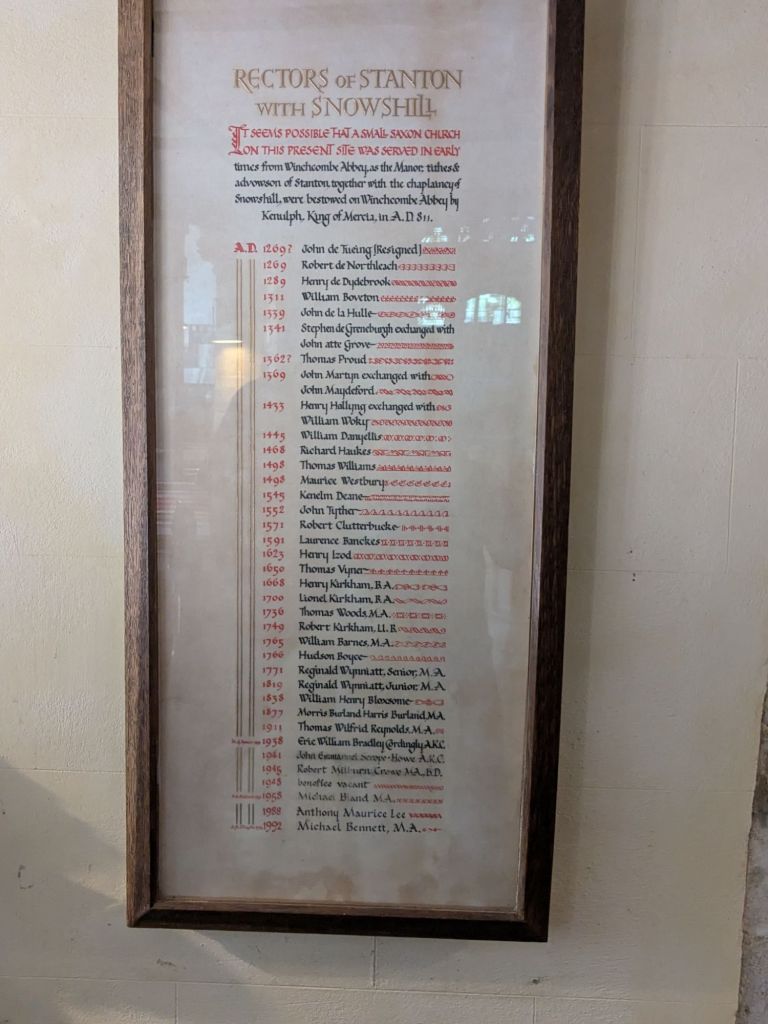 RECTORS OF STANTON
WITH SNOWSHILL
IT SEEMS POSSIBLE THAT A SMALL SAXON CHURCH
ON THIS PRESENT SITE WAS SERVED IN EARLY
times from Winchcombe Abbey, as the Manor, tithes &
advowson of Stanton, together with the chaplaincy of
Snowshill, were bestowed on Winchcombe Abbey by
Kenulph, King of Mercia, in A.D. 811.
A.D. 1269? John de Tueing [Resigned]
1269 Robert de Northleach
1289 Henry de Dydebrook
1311 William Boveton
1339 John de la Hulle
1341 Stephen de Greneburgh exchanged with
John atte Grove
1362? Thomas Proud
1369 John Martyn exchanged with
John Maydeford
1433 Henry Hallyng exchanged with
William Woky
1445 William Danyellis
1468 Richard Haukes
1498 Thomas Williams
1498 Maurice Westbury
1545 Kenelm Deane
1552 John Tyther
1571 Robert Clutterbucke
1591 Laurence Banckes
1623 Henry Izod
1650 Thomas Vyner
1668 Henry Kirkham, B.A.
1700 Lionel Kirkham, B.A.
1736 Thomas Woods, M.A.
1749 Robert Kirkham, Ll. B
1765 William Barnes, M.A.
1766 Hudson Boyce
1771 Reginald Wynniatt, Senior, M.A.
1819 Reginald Wynniatt, Junior, M.A.
1838 William Henry Bloxsome
1877 Morris Burland Harris Burland, M.A.
1911 Thomas Wilfrid Reynolds, M.A.
1938 Eric William Bradley Cordingly A.K.C.
1941 John Emmanuel Scrope-Howe A.K.C.
1945 Robert Milburn Crowe M.A., B.D.
1948 benefice vacant
1958 Michael Bland M.A.
1988 Anthony Maurice Lee
1992 Michael Bennett, M.A.